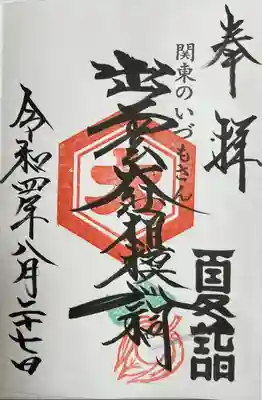 奉拝
夏詣
関東のいづもさん
出雲大社相模分祠
大
令和四年八月二十七日